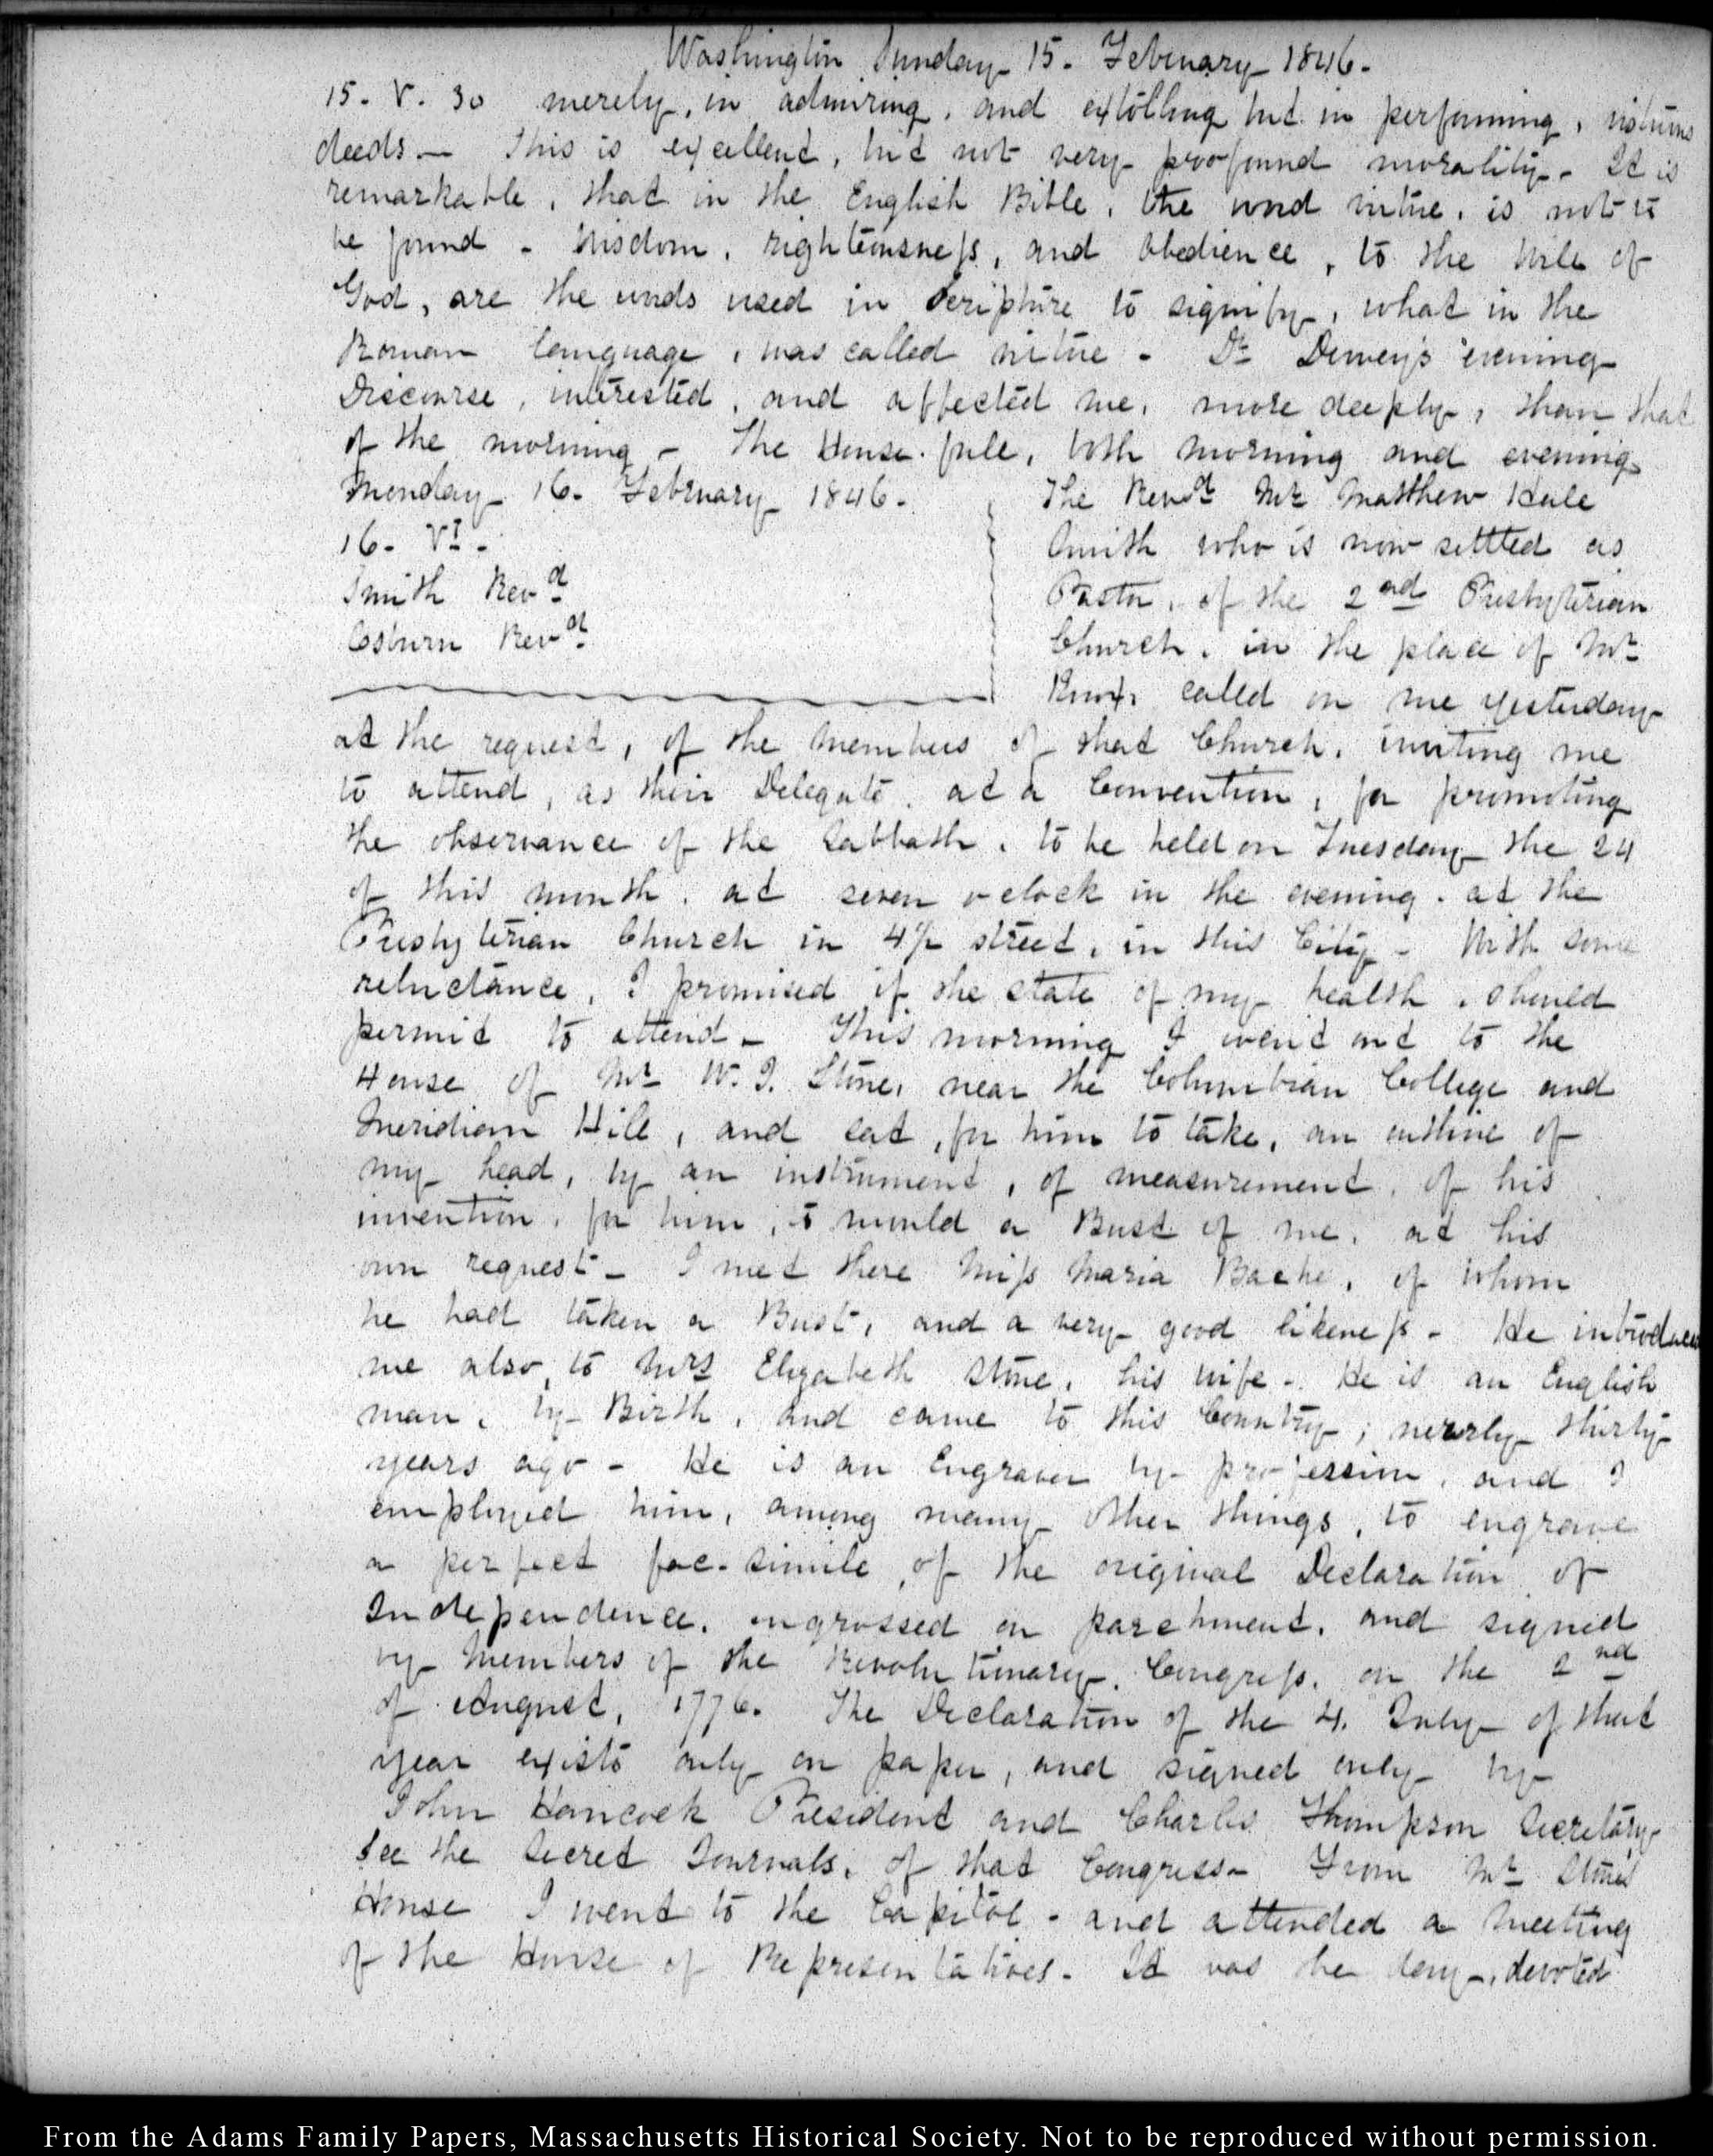 Washington Sunday 15. February 1846.
15. V. 30 merely, in admiring, and extolling but in performing, virtuous
deeds — This is excellent, but not very profound morality. It is
remarkable, that in the English Bible, the word virtue, is not to
be found - Wisdom, righteousness, and obedience, to the will of
God, are the words used in Scripture to signify, what in the
Roman language, was called virtue - Dr Dewey's evening
Discourse, interested, and affected me, more deeply, than that
of the morning - The House full, both morning and evening
Monday 16. February 1846.
16. VI.
Smith Revd
Cosburn Revd
The Revd Mr Matthew Hale
Smith who is now settled as
Pastor, of the 2nd Presbyterian
Church, in the place of Mr
Knox, called on me yesterday
at the request, of the members of that Church, inviting me
to attend, as their Delegate, at a Convention, for promoting
the observance of the Sabbath, to be held on Tuesday the 24
of this month, at seven o clock in the evening, at the
Presbyterian Church in 4½ street, in this City - With some
reluctance, I promised if the state of my health, should
permit to attend - This morning I went out to the
House of Mr W. J. Stone, near the Columbian College and
Meridian Hill, and sat, for him to take, an outline of
my head, by an instrument, of measurement, of his
invention, for him, to mould a Bust of me, at his
own request - I met there Miss Maria Bache, of whom
he had taken a Bust, and a very good likeness - He introduced
me also, to Mrs Elizabeth Stone, his wife - He is an English
man, by Birth, and came to this Country; nearly thirty
years ago - He is an Engraver by profession, and I
employed him, among many other things, to engrave
a perfect fac-simile, of the original Declaration of
Independence, engrossed on parchment, and signed
by Members of the Revolutionary Congress, on the 2nd
of August, 1776. The Declaration of the 4. July of that
year exists only on paper, and signed only by
John Hancock President and Charles Thompson Secretary
See the Secret Journals, of that Congress - From Mr Stone's
House I went to the Capitol - and attended a meeting
of the House of Representatives. It was the day, devoted
From the Adams Family Papers, Massachusetts Historical Society. Not to be reproduced without permission.